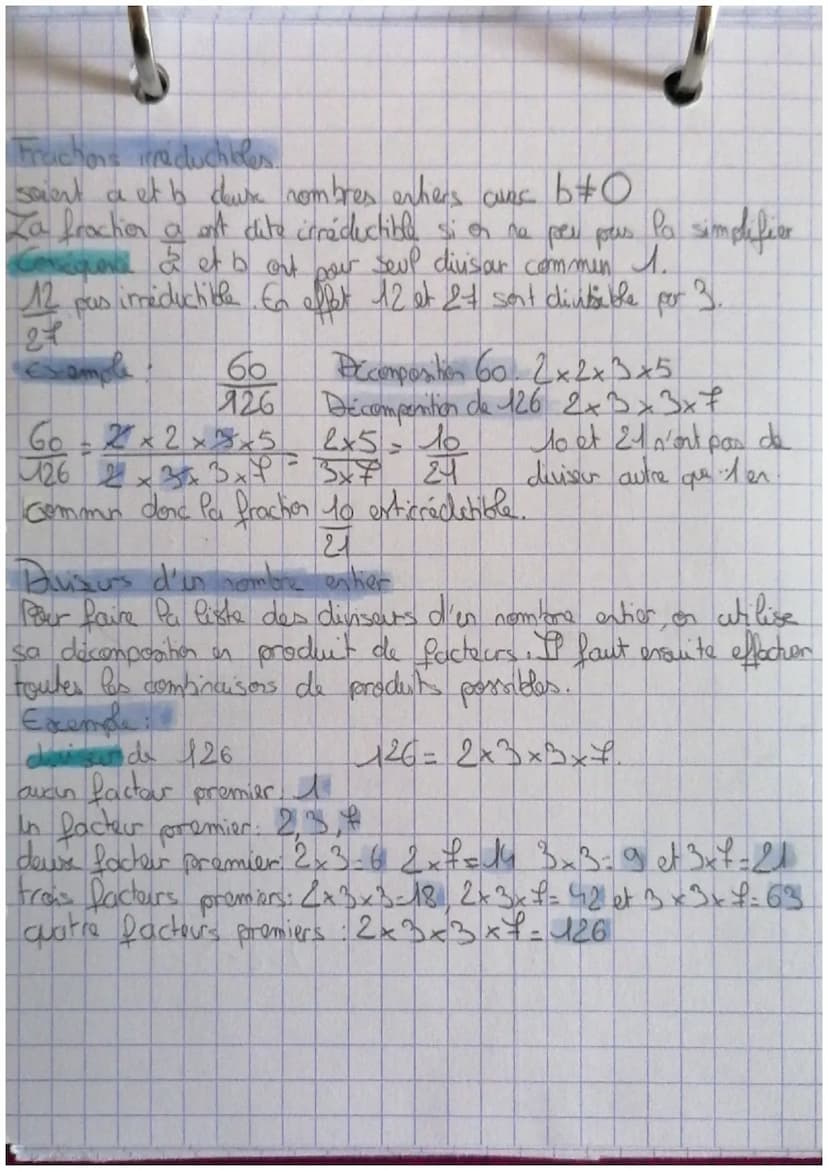 Fractions irréductibles.
soient a et b deux nombres entiers avec b≠0
La fraction a/b est dite irréductible si on ne peu pas la simplifier
a et b ont pour seul divisar commun 1.
12/27 pas irréductible. En effet 12 et 27 sont divisible par 3.
Exemple : 60/126 Décomposition 60. 2×2×3×5
Décomposition de 126 2×3×3×7
60/126 = 2×2×3×5/2×3×3×7 = 2×5/3×7 = 10/21 10 et 21 n'ont pas de
diviseur autre que 1 en
commun donc la fraction 10/21 est irréductible.
Diviseurs d'un nombre entier
Pour faire la liste des diviseurs d'un nombre entier, on utilise
sa décomposition en produit de facteurs. Il faut ensuite effectuer
toutes les combinaisons de produits possibles.
Exemple :
diviseur de 126 126 = 2×3×3×7.
aucun facteur premier : 1
un facteur premier : 2, 3, 7
deux facteur premier : 2×3=6 2×7=14 3×3=9 et 3×7=21
trois facteurs premiers : 2×3×3=18, 2×3×7=42 et 3×3×7=63
quatre facteurs premiers : 2×3×3×7=126